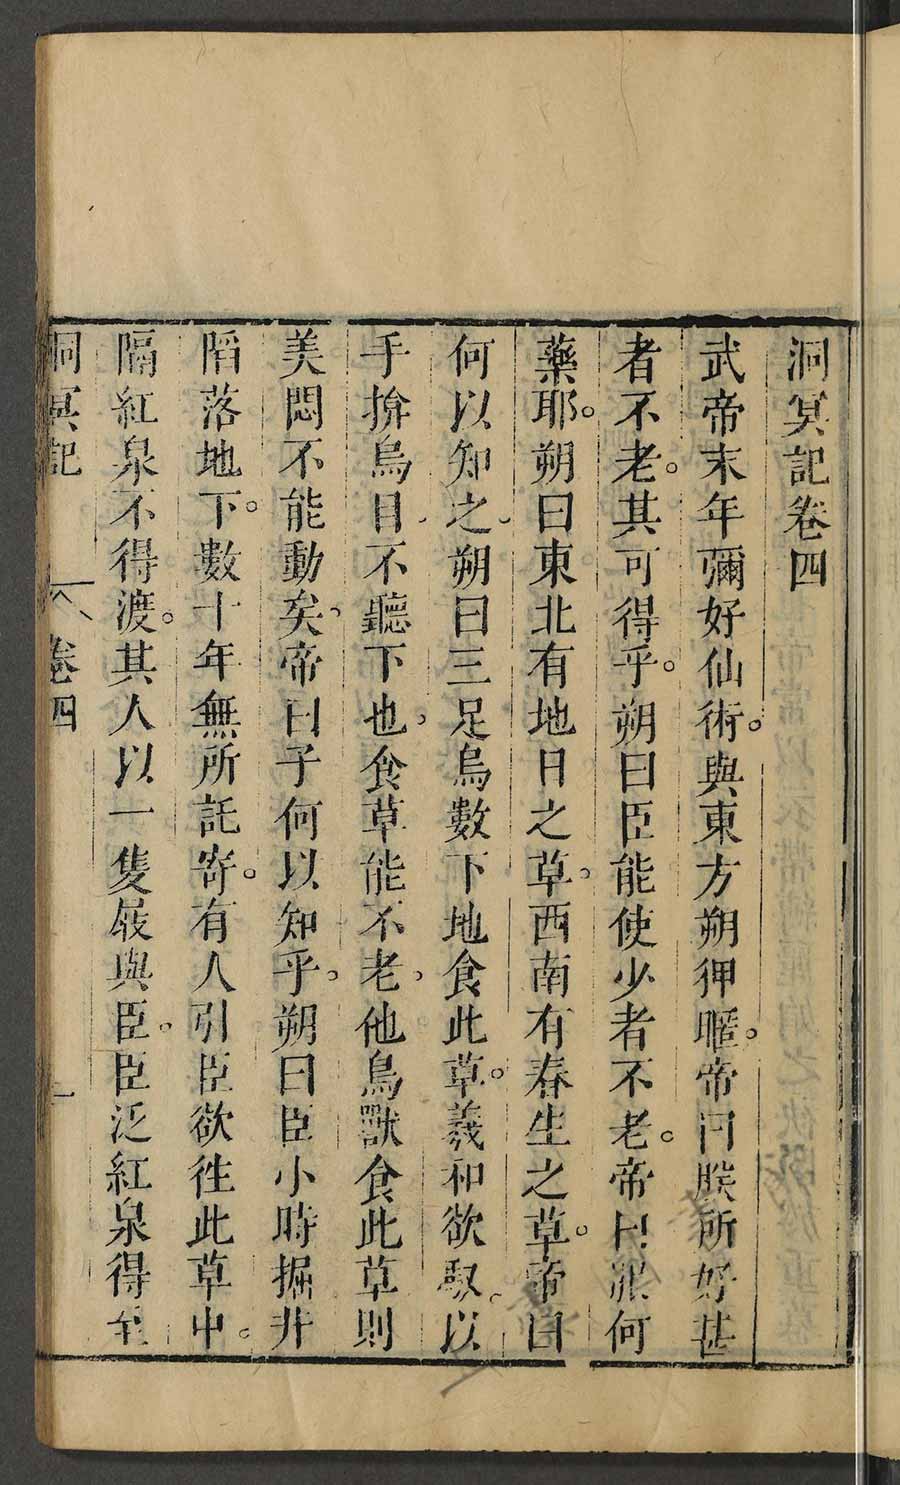 洞冥記卷四
武帝末年彌好仙術。與東方朔狎暱。帝曰朕所好甚
者不老。其可得乎。朔曰臣能使少者不老。帝曰服何
藥耶。朔曰東北有地日之草。西南有春生之草。帝曰
何以知之。朔曰三足烏數下地食此草。羲和欲馭。以
手揜烏目。不聽下也。食草能不老。他鳥獸食此草則
美悶不能動矣。帝曰子何以知乎。朔曰臣小時掘井
陷落地下。數十年無所託寄。有人引臣欲徃此草中。
隔紅泉不得渡。其人以一隻屐與臣。臣泛紅泉得至
洞冥記 卷四 一